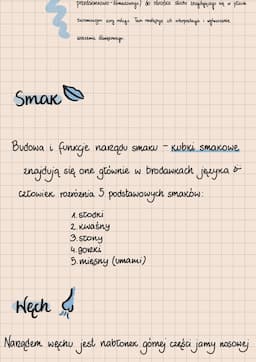 przedsionkowo - ślimakowego) do ośrodka słuchu znajdującego się w płacie
skroniowym kory mózgu. Tam następuje ich interpretacja i wytworzenie
wrażenia dźwiękowego.
Smak
Budowa i funkcje narządu smaku - kubki smakowe
znajdują się one głównie w brodawkach języka
człowiek rozróżnia 5 podstawowych smaków:
1. słodki
2. kwaśny
3. słony
4. gorzki
5. mięsny (umami)
Węch
Narządem węchu jest nabłonek górnej części jamy nosowej